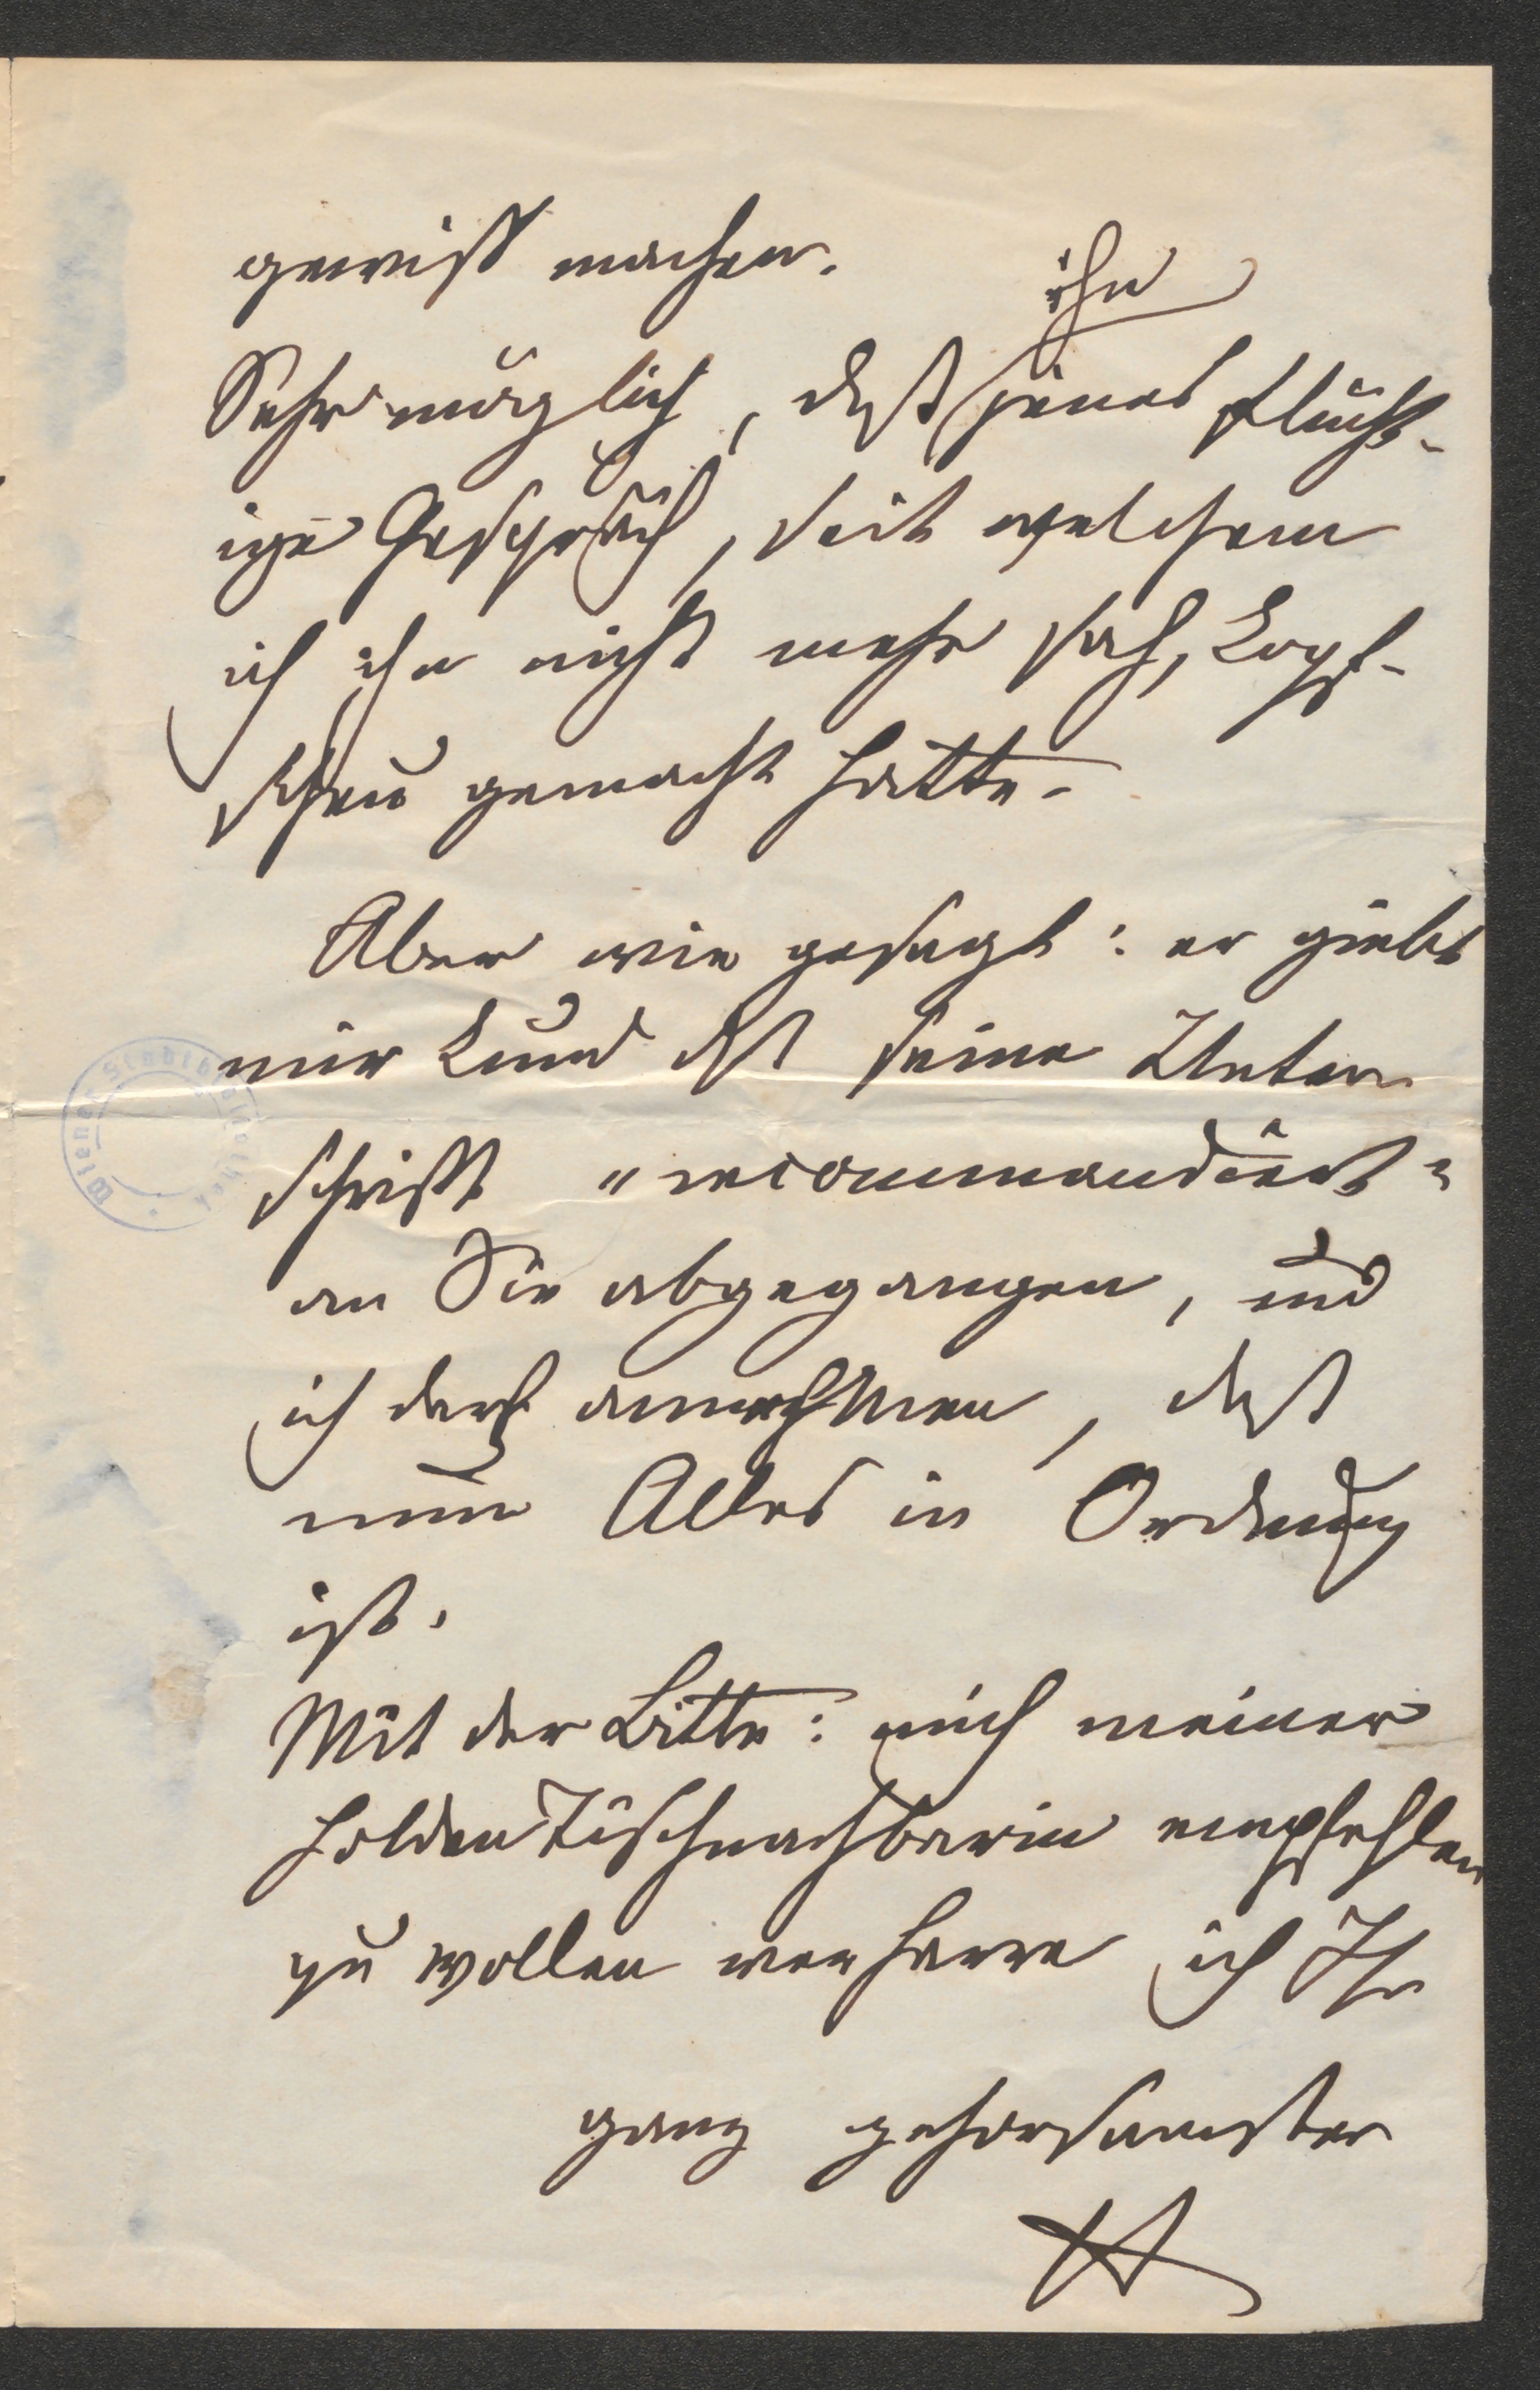 gewiß machen.
Sehr möglich, daß ihn jenes flücht-
ige Gespräch, seit welchem
ich ihn nicht mehr sah, kopf-
scheu gemacht hatte.
Aber wie gesagt: er giebt
mir kund daß seine Unter-
schrift "recommandirt"
an Sie abgegangen, und
ich darf annehmen, daß
nun Alles in Ordnung
ist.
Mit der Bitte: mich meiner
holden Tischnachbarin empfehlen
zu wollen verharre ich Ihr
ganz gehorsamster
Wiener Stadtbibliothek